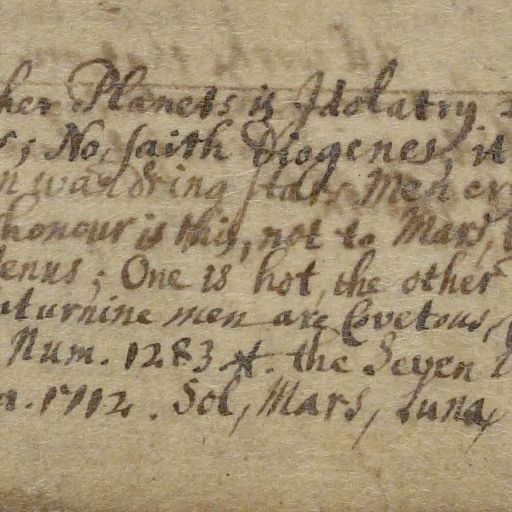 her Planets is Idolatry
s; No, saith Diogenes, it
n wandring stars Men er
honour is this, not to Mars,
enus; One is hot, the other
aturnine men are Covetous,
Num. 1283 *. the Seven
a. 1712. Sol, Mars, Luna,